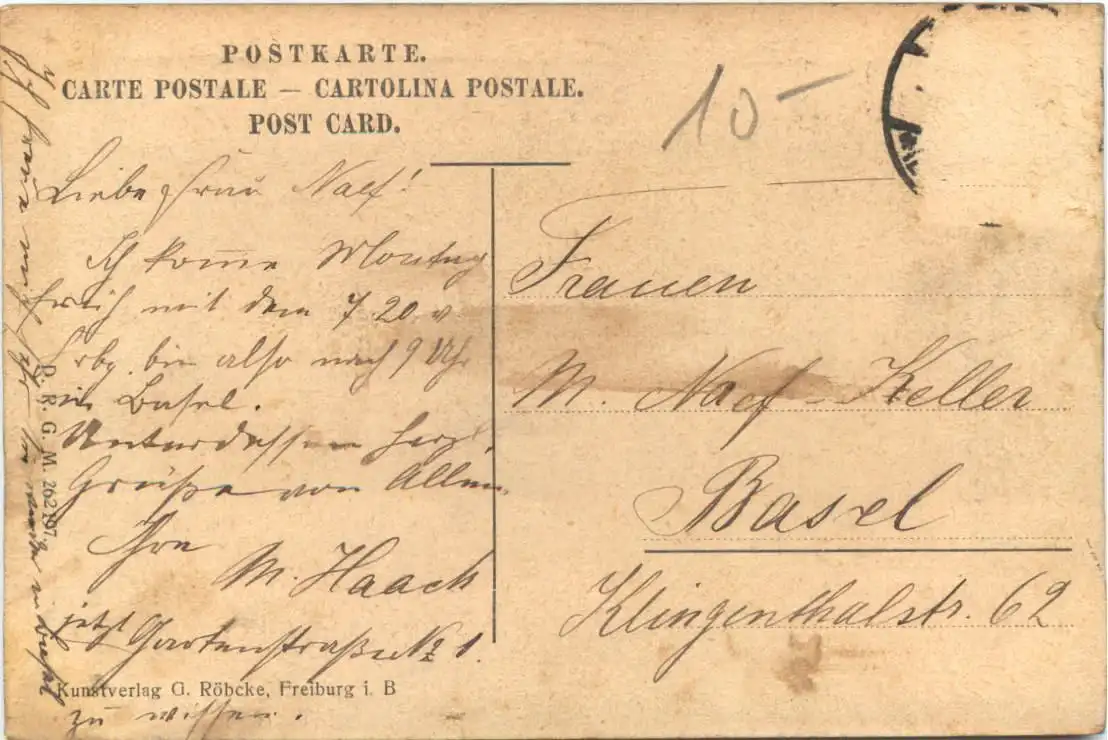 POSTKARTE.
CARTE POSTALE — CARTOLINA POSTALE.
POST CARD.
10-
Liebe Frau Naef!
Ich kom̅e Montag
früh mit dem 7.20 v
Frbg. bin also nach 9 Uhr
in Basel.
Unterdessen herzl.
Grüße von Allen
Ihre
M. Haack
jetzt Gartenstraße № 1.
Ich freue mich
zu wissen.
D. R. G. M. 262197
Kunstverlag G. Röbcke, Freiburg i. B
Frauen
M. Naef-Keller
Basel
Klingenthalstr. 62